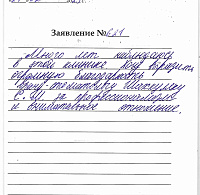 Заявление №621
Много лет наблюдаюсь
в этой клинике Хочу выразить
огромную благодарность
врачу-
С.И за профессионализм
и внимательное отношение.